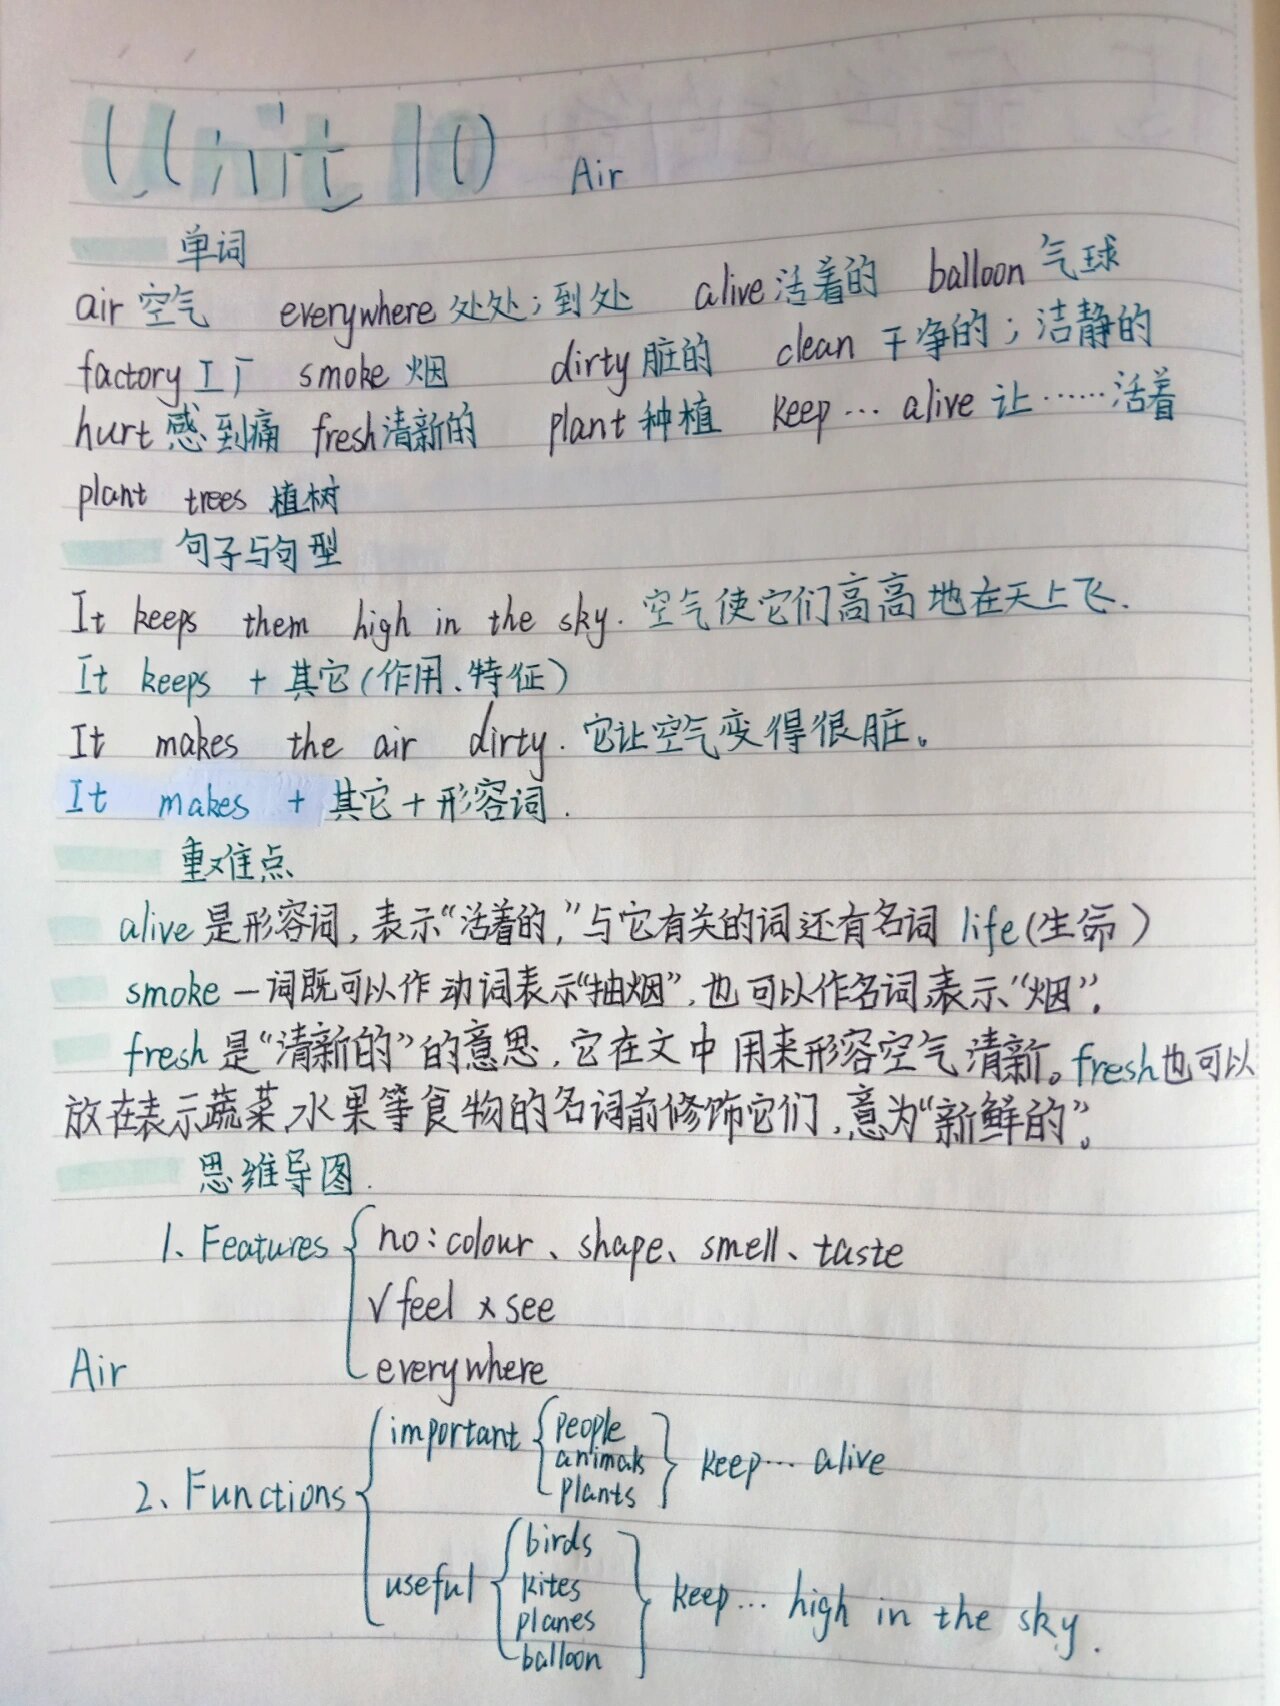 Unit 10 Air
单词
air 空气 everywhere 处处；到处 alive 活着的 balloon 气球
factory 工厂 smoke 烟 dirty 脏的 clean 干净的；洁静的
hurt 感到痛 fresh 清新的 plant 种植 keep … alive 让……活着
plant trees 植树
句子与句型
It keeps them high in the sky. 空气使它们高高地在天上飞.
It keeps + 其它(作用、特征)
It makes the air dirty. 它让空气变得很脏。
It makes + 其它+形容词.
重难点
alive 是形容词,表示“活着的,”与它有关的词还有名词 life(生命)
smoke 一词既可以作动词表示“抽烟”,也可以作名词,表示“烟”.
fresh 是“清新的”的意思,它在文中用来形容空气清新。fresh也可以
放在表示蔬菜、水果等食物的名词前修饰它们,意为“新鲜的”。
思维导图.
1、Features no:colour、shape、smell、taste
√feel ×see
Air everywhere
2、Functions important people animals plants keep… alive
useful birds kites planes balloon keep… high in the sky.